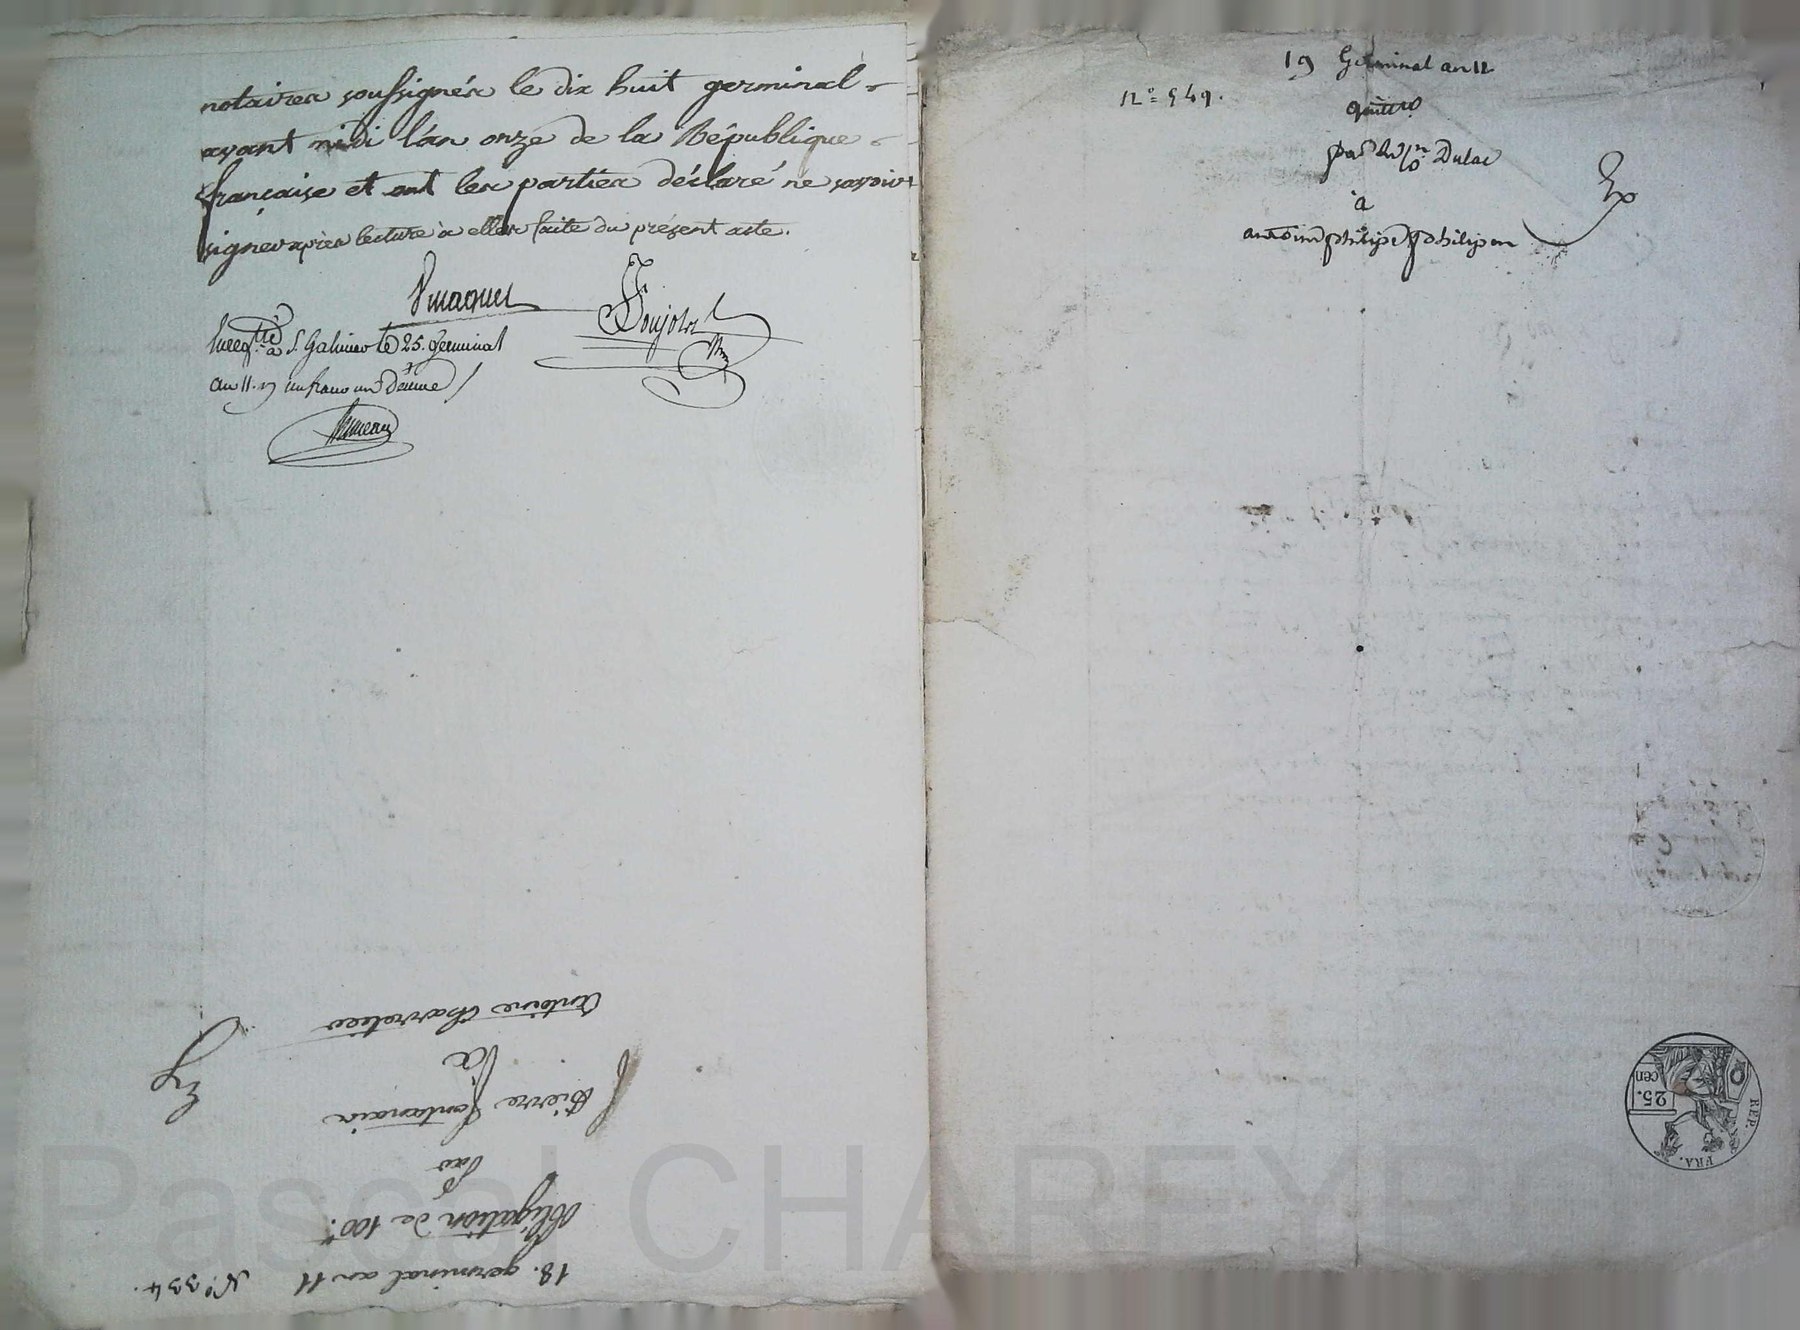 notaires soussignés le dix huit germinal
avant midi l'an onze de la République
française et ont les parties déclaré ne savoir
signer après lecture à elles faite du présent acte.
à St Galmier le 25. Germinal
an 11. un franc un Décime
18. germinal an 11 N° 334.
Obligation de 100#
par
Pierre
à
Antoine
19 Germinal an 11
N° 549.
par Dulac
à
antoine philipe philipon
REP. FRA.
25.
cen
Pascal CHAREYRO